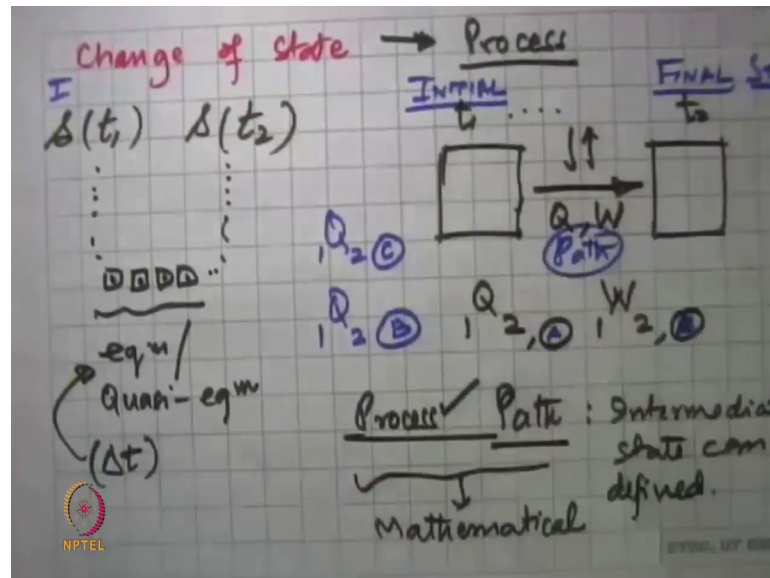 Change of state → Process
I
S(t₁) S(t₂)
INITIAL
t₁ ....
FINAL
t₂
Q, W
Path
₁Q₂ C
₁Q₂ B ₁Q₂, A ₁W₂,
eqᵐ/
Quasi-eqᵐ
(Δt)
Process✓ Path : Intermedia
state can
defined.
Mathematical
NPTEL